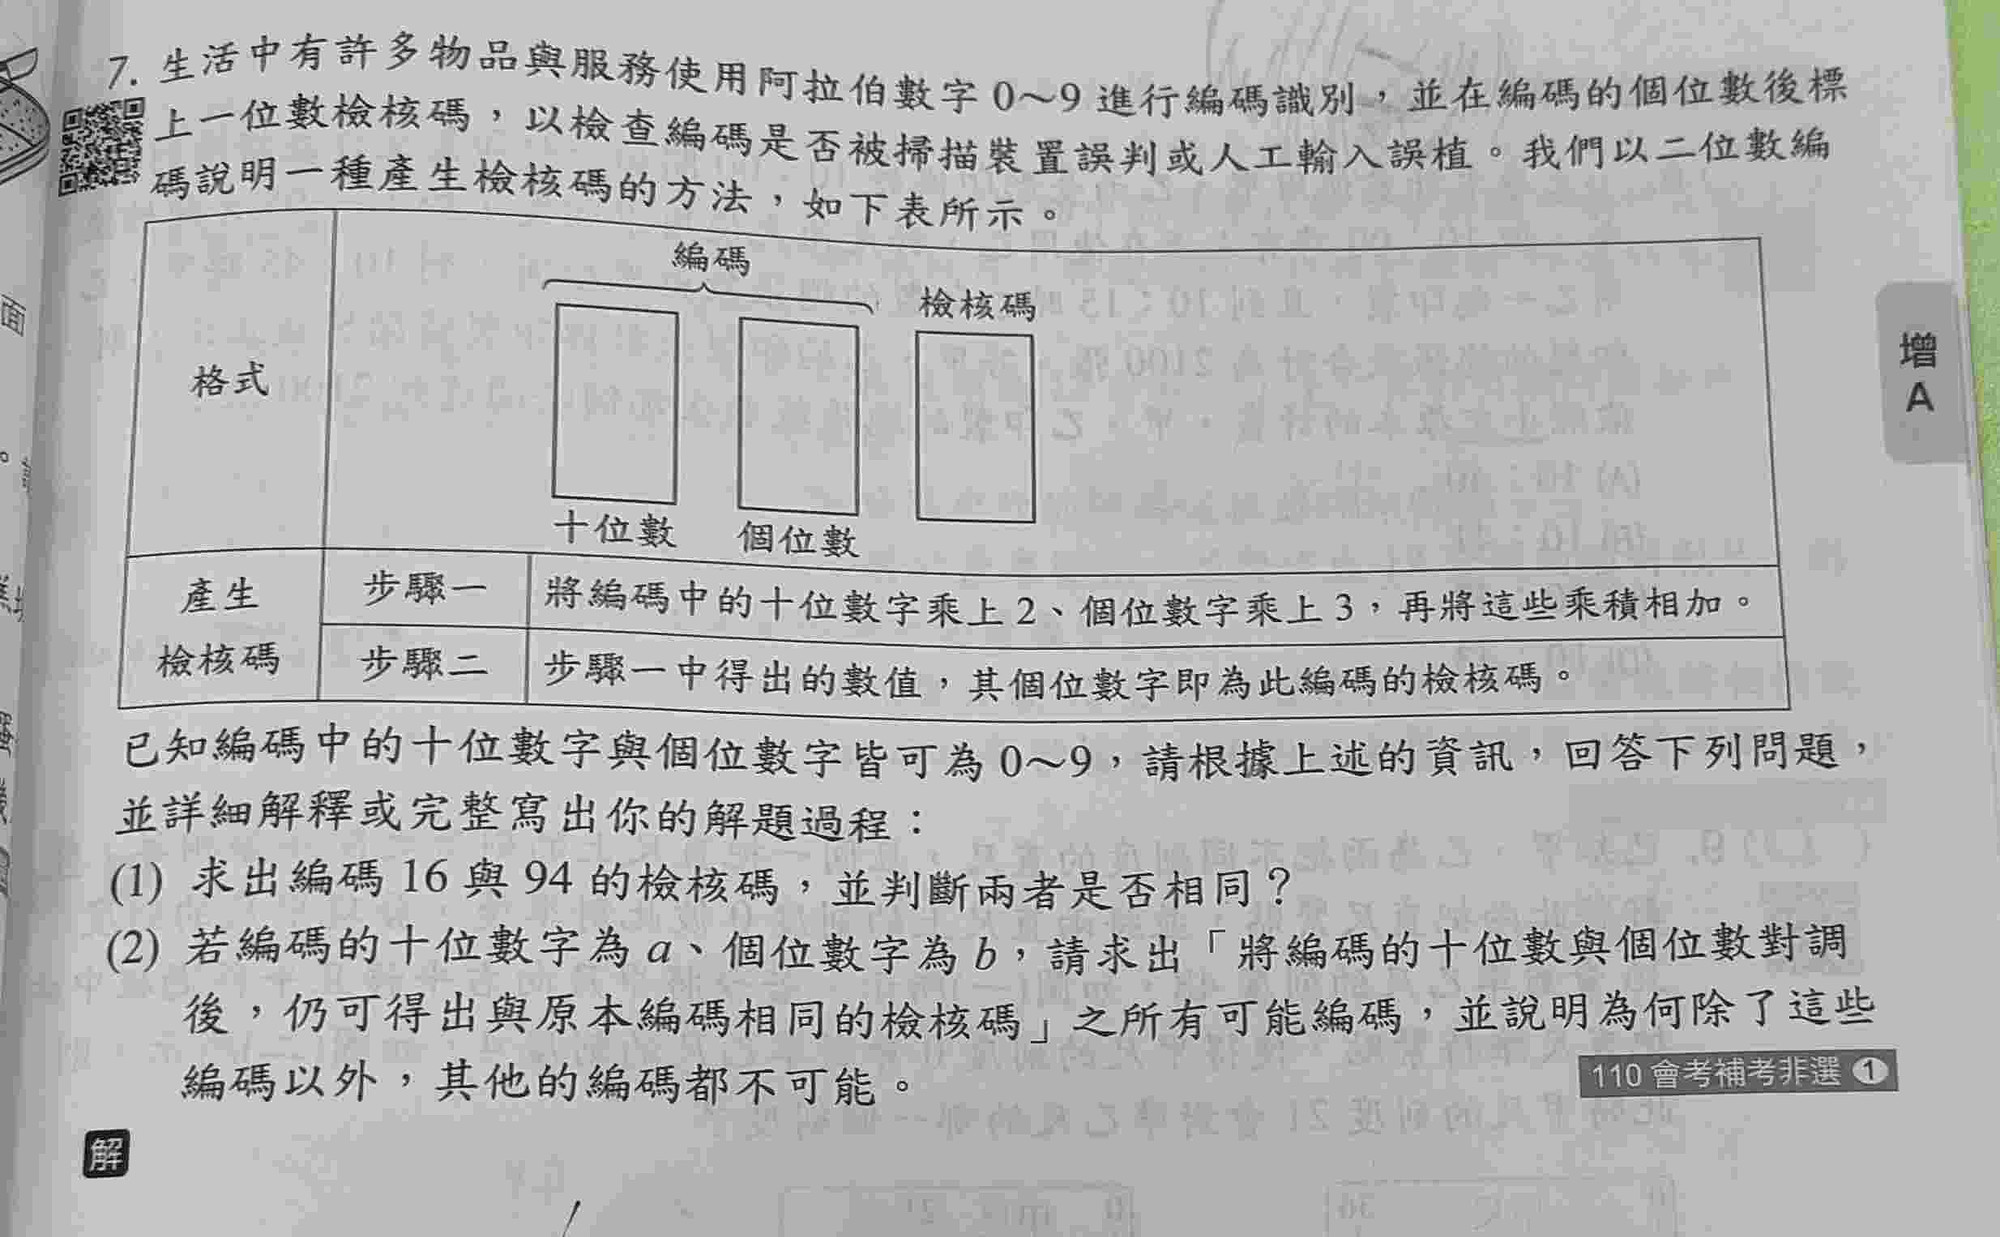 7. 生活中有許多物品與服務使用阿拉伯數字 0～9 進行編碼識別，並在編碼的個位數後標
上一位數檢核碼，以檢查編碼是否被掃描裝置誤判或人工輸入誤植。我們以二位數編
碼說明一種產生檢核碼的方法，如下表所示。
編碼
檢核碼
格式
十位數 個位數
產生
檢核碼
步驟一 將編碼中的十位數字乘上 2、個位數字乘上 3，再將這些乘積相加。
步驟二 步驟一中得出的數值，其個位數字即為此編碼的檢核碼。
已知編碼中的十位數字與個位數字皆可為 0～9，請根據上述的資訊，回答下列問題，
並詳細解釋或完整寫出你的解題過程：
(1) 求出編碼 16 與 94 的檢核碼，並判斷兩者是否相同？
(2) 若編碼的十位數字為 a、個位數字為 b，請求出「將編碼的十位數與個位數對調
後，仍可得出與原本編碼相同的檢核碼」之所有可能編碼，並說明為何除了這些
編碼以外，其他的編碼都不可能。
110 會考補考非選 ①
解
增
A
面